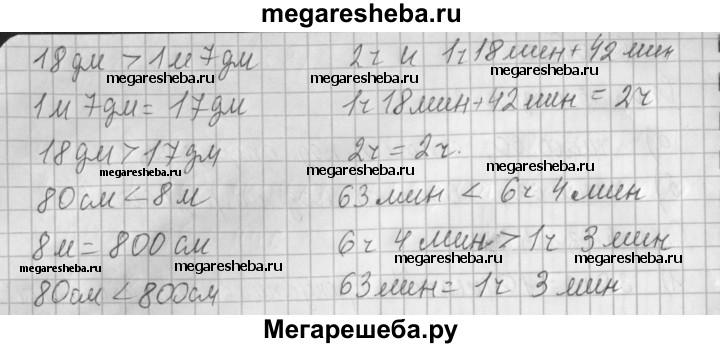 megaresheba.ru
18 дм > 1 м 7 дм
megaresheba.ru
1 м 7 дм = 17 дм
18 дм > 17 дм
megaresheba.ru
80 см < 8 м
8 м = 800 см
megaresheba.ru
megaresheba.ru
80 см < 800 см
2 ч и 1 ч 18 мин + 42 мин
megaresheba.ru
megaresheba.ru
1 ч 18 мин + 42 мин = 2 ч
2 ч = 2 ч.
megaresheba.ru
megaresheba.ru
63 мин < 6 ч 4 мин
6 ч 4 мин > 1 ч 3 мин
megaresheba.ru
megaresheba.ru
63 мин = 1 ч 3 мин
Мегарешеба.ру